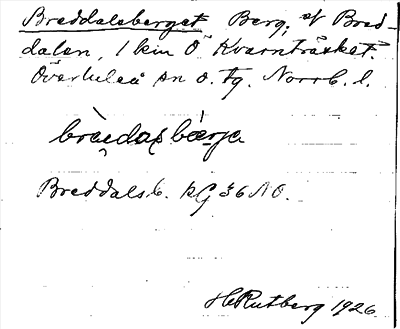 Breddalsberget Berg, af Bred-
dalen, 1 km Ö Kvarnträsket.
Överluleå sn o. tg. Norrb. l.
Breddalsb. kG 36 NO.
H Rutberg 1926.